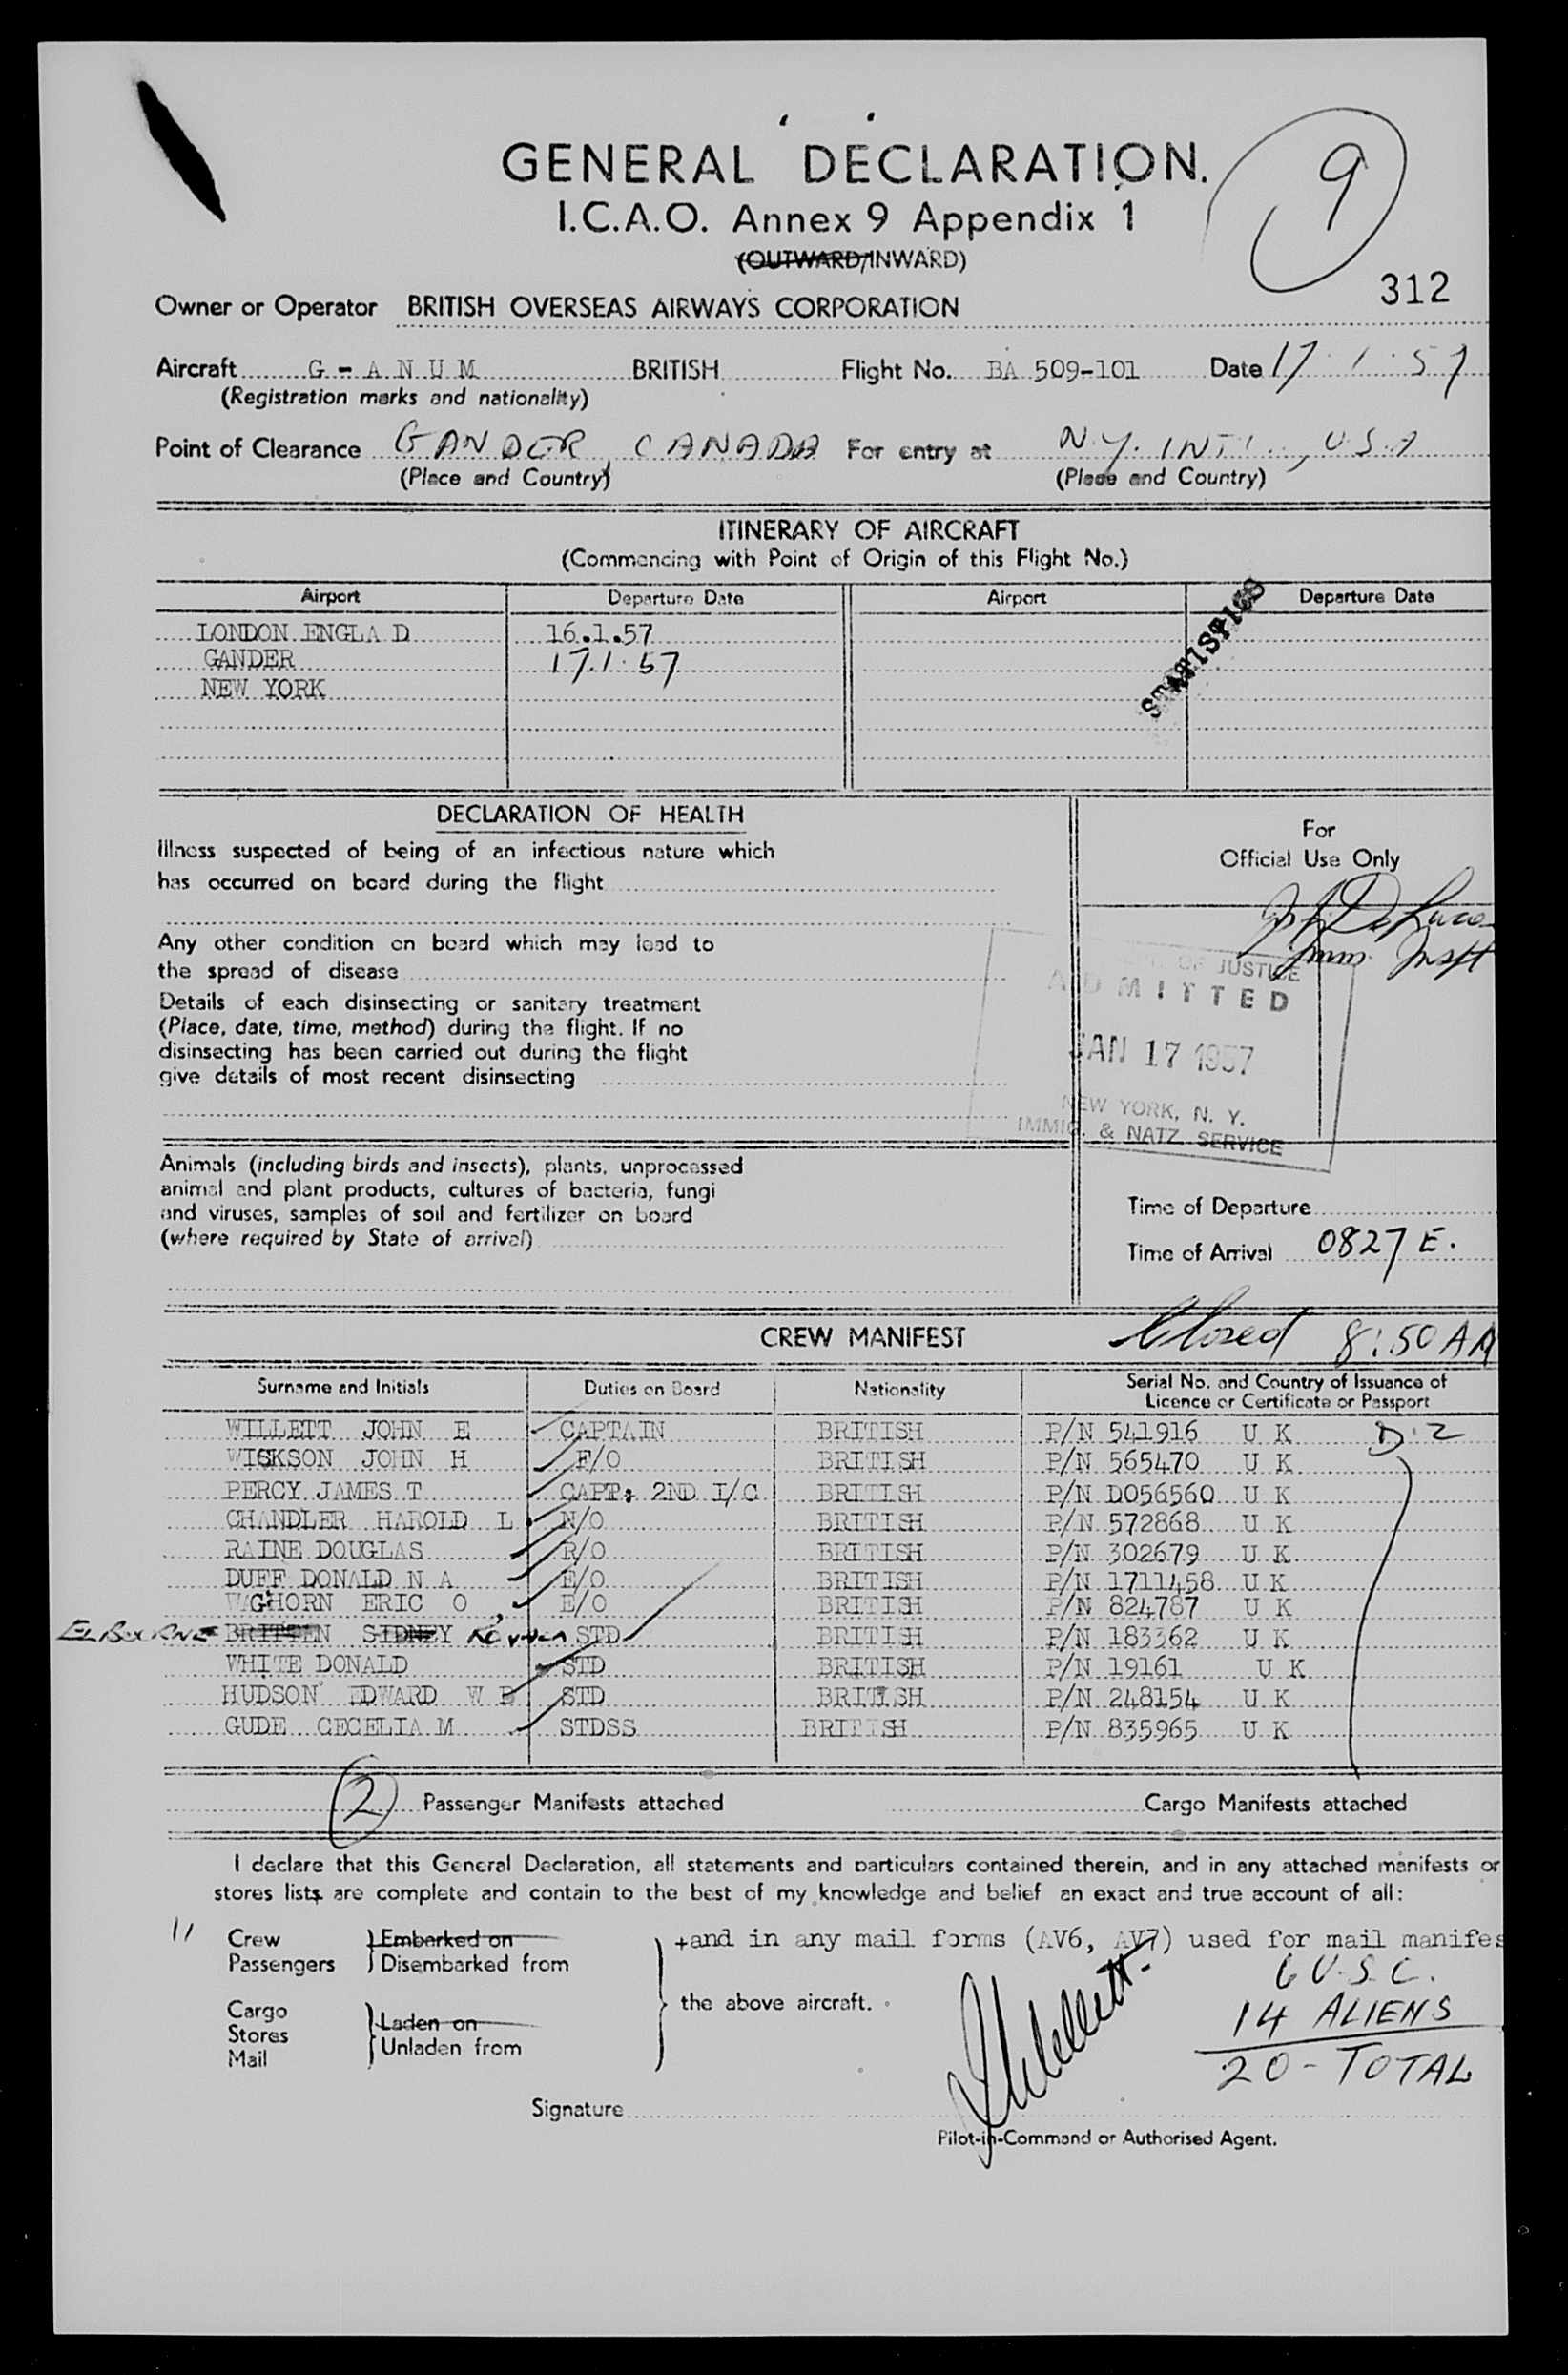 GENERAL DECLARATION.
9
I.C.A.O. Annex 9 Appendix 1
(OUTWARD/INWARD)
312
Owner or Operator BRITISH OVERSEAS AIRWAYS CORPORATION
Aircraft G - A N U M BRITISH Flight No. BA 509-101 Date 17.1.57
(Registration marks and nationality)
Point of Clearance GANDER, CANADA For entry at N.Y. INTL., U.S.A
(Place and Country) (Place and Country)
ITINERARY OF AIRCRAFT
(Commencing with Point of Origin of this Flight No.)
Airport Departure Date Airport Departure Date
STATISTICS
LONDON ENGLA D 16.1.57
GANDER 17.1.57
NEW YORK
DECLARATION OF HEALTH
For
Official Use Only
Illness suspected of being of an infectious nature which
has occurred on board during the flight
Any other condition on board which may lead to
the spread of disease
Details of each disinsecting or sanitary treatment
(Place, date, time, method) during the flight. If no
disinsecting has been carried out during the flight
give details of most recent disinsecting
Immi. Inspt
OF JUSTICE
ADMITTED
JAN 17 1957
NEW YORK, N. Y.
IMMIG. & NATZ. SERVICE
Animals (including birds and insects), plants, unprocessed
animal and plant products, cultures of bacteria, fungi
and viruses, samples of soil and fertilizer on board
(where required by State of arrival)
Time of Departure
Time of Arrival 0827 E.
CREW MANIFEST Closed 8:50 AM
Surname and Initials Duties on Board Nationality Serial No. and Country of Issuance of
Licence or Certificate or Passport
WILLETT JOHN E CAPTAIN BRITISH P/N 541916 U K D.2
WICKSON JOHN H F/O BRITISH P/N 565470 U K
PERCY JAMES T CAPT. 2ND I/C BRITISH P/N D056560 U K
CHANDLER HAROLD L N/O BRITISH P/N 572868 U K
RAINE DOUGLAS R/O BRITISH P/N 302679 U K
DUFF DONALD N A E/O BRITISH P/N 1711458 U K
WAGHORN ERIC O E/O BRITISH P/N 824787 U K
ELBOURNE BRITTEN SIDNEY STD BRITISH P/N 183362 U K
WHITE DONALD STD BRITISH P/N 19161 U K
HUDSON EDWARD W B STD BRITISH P/N 248154 U K
GUDE CECELIA M STDSS BRITISH P/N 835965 U K
2 Passenger Manifests attached Cargo Manifests attached
I declare that this General Declaration, all statements and particulars contained therein, and in any attached manifests or
stores lists are complete and contain to the best of my knowledge and belief an exact and true account of all:
11 Crew Embarked on +and in any mail forms (AV6, AV7) used for mail manifes
Passengers Disembarked from
6 U.S.C.
Cargo the above aircraft. 14 ALIENS
Stores Laden on
Mail Unladen from
20 - TOTAL
JWillett
Signature
Pilot-in-Command or Authorised Agent.